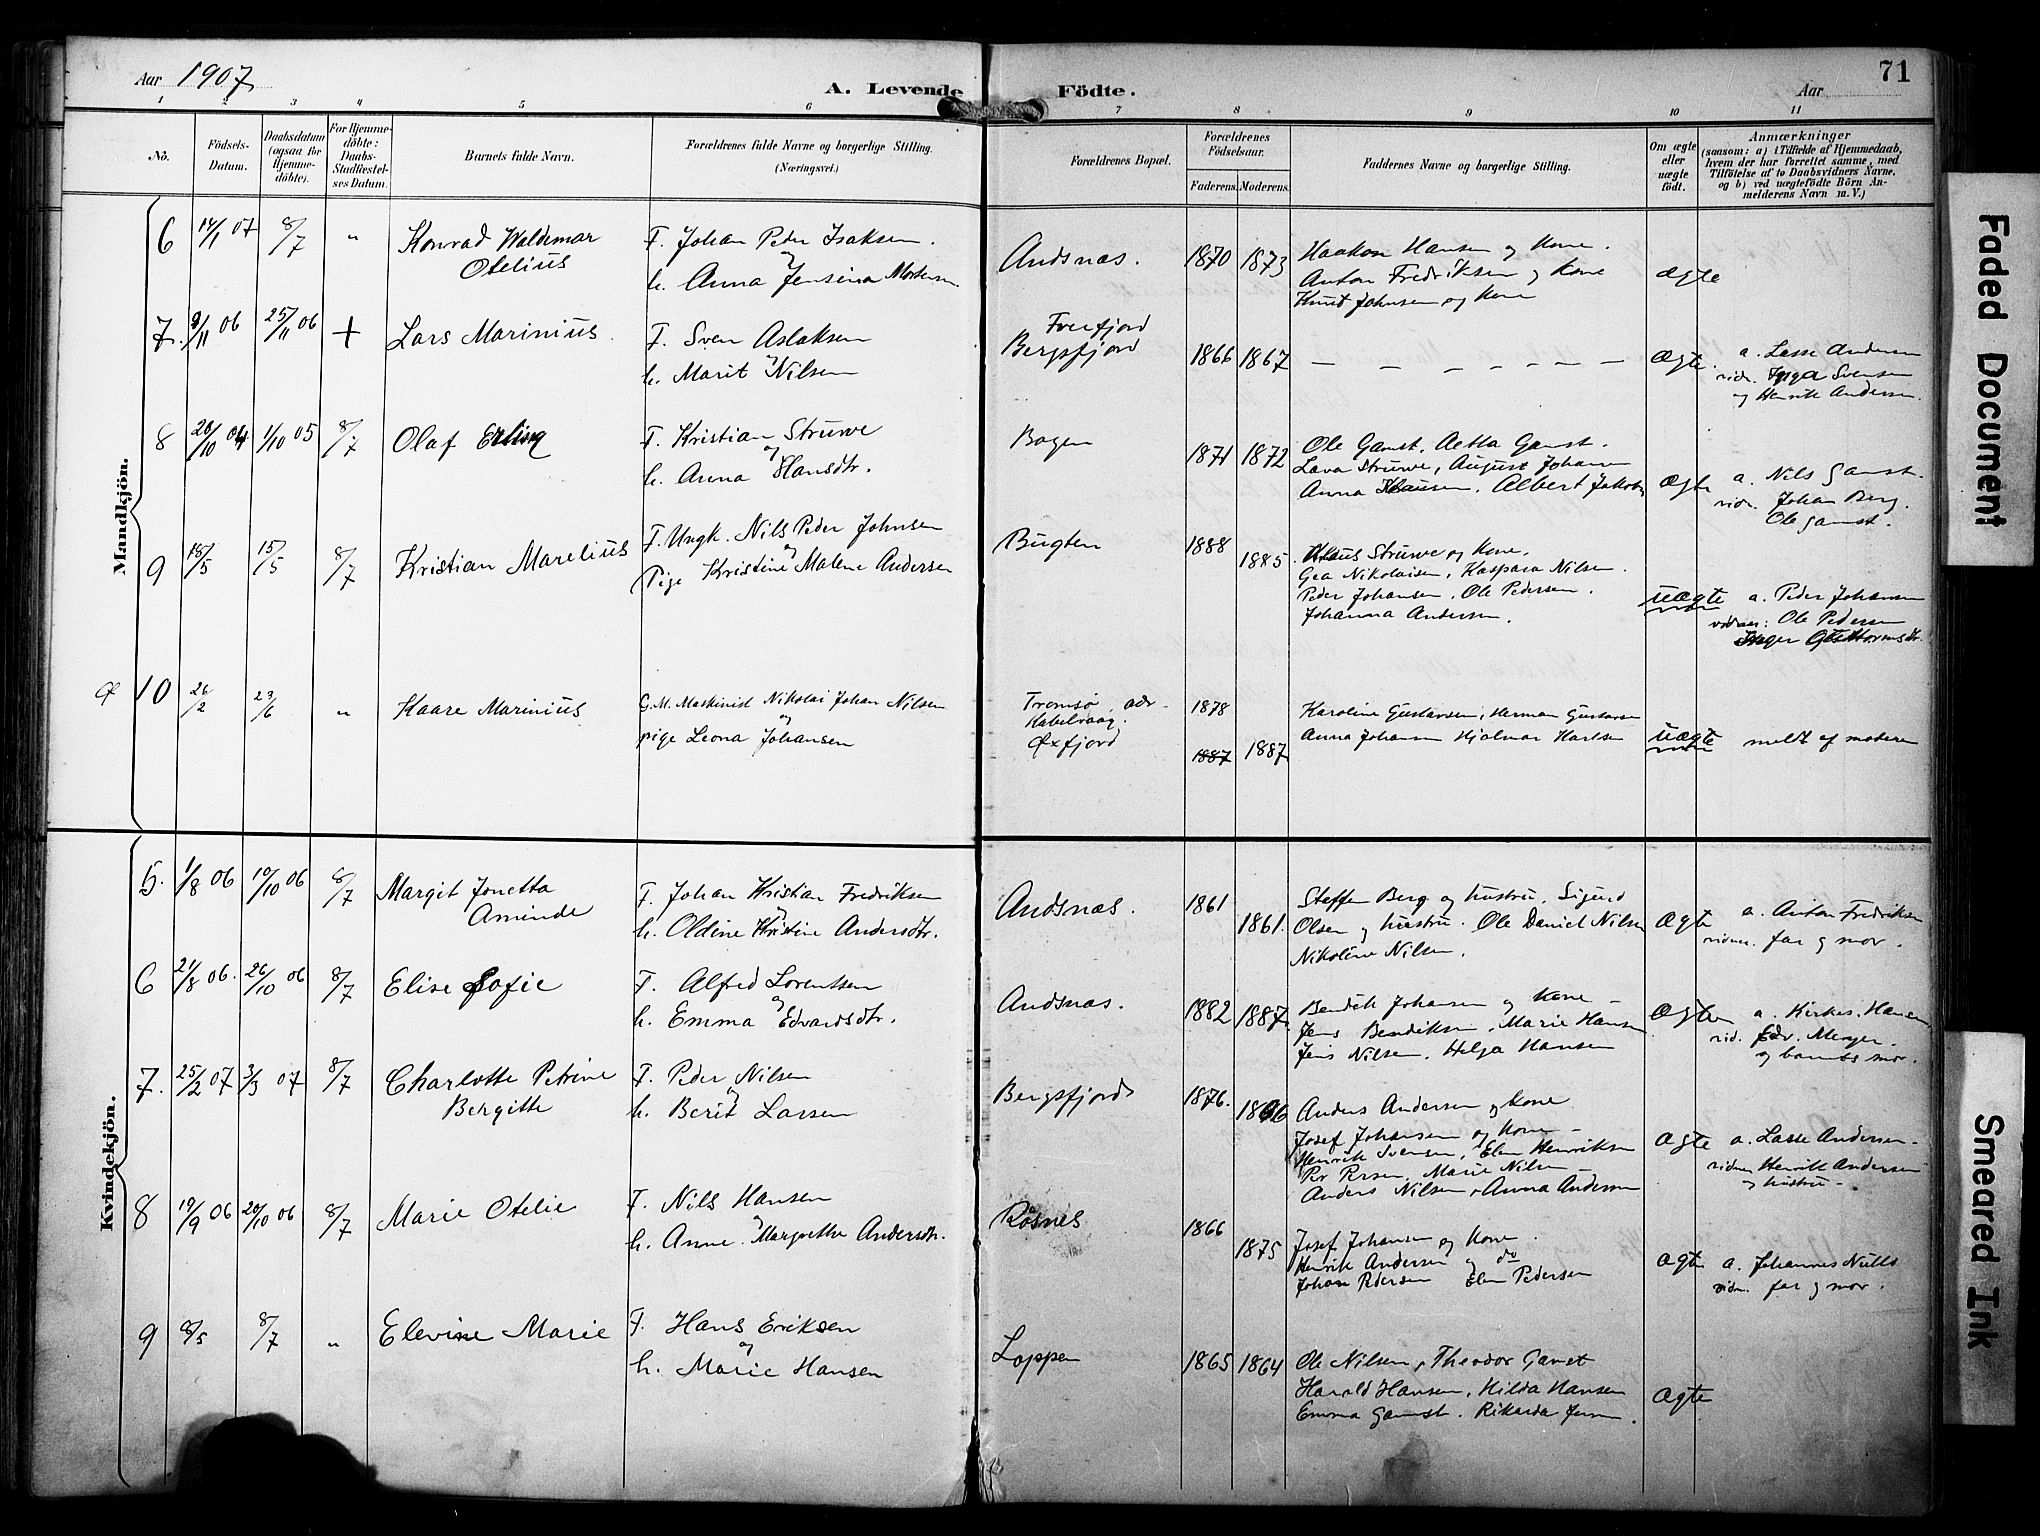 Aar 1907
A. Levende Födte.
Aar
71
1 2 3 4 5 6 7 8 9 10 11
No.
Födsels-
Datum.
Daabsdatum
(ogsaa for
Hjemme-
döbte).
For Hjemme-
döbte:
Daabs-
Stadfæstel-
ses Datum.
Barnets fulde Navn.
Forældrenes fulde Navne og borgerlige Stilling.
(Næringsvei.)
Forældrenes Bopæl.
Forældrenes
Födselsaar.
Faderens. Moderens.
Faddernes Navne og borgerlige Stilling.
Om ægte
eller
uægte
födt.
Anmærkninger
(saasom: a) i Tilfælde af Hjemmedaab,
hvem der har forrettet samme, med
Tilföielse af to Daabsvidners Navne,
og b) ved uægtefödte Börn An-
melderens Navn m. V.)
Mandkjön.
6 14/1 07 8/7 " Konrad Waldemar
Otelius
F. Johan Peder Isaksen.
og
h. Anna Jensina Mortensen
Andsnæs. 1870 1873
Haakon Hansen og Kone.
Anton Fredriksen og Kone
Knut Johnsen og Kone
ægte
7. 9/11 06 25/11 06 + Lars Marinius
F. Sven Aslaksen
og
h. Marit Nilsen
Bergsfjord 1866 1867
— — — — — — —
ægte
a. Lasse Andersen
vidn. Inga Svensen
og Henrik Andersen.
8 20/10 04 1/10 05 8/7 Olaf Erling
F. Kristian Struwe
og
h. Anna Hansdtr.
Bogen 1871 1872
Ole Gamst. Aetta Gamst.
Lava Struwe, August Johansen
Anna Klausen, Albert Jakobs
ægte
a. Nils Gamst.
vidn. Johan Berg.
Ole Gamst.
9 18/5 15/5 8/7 Kristian Marelius
F. Ungk. Nils Peder Johnsen
og
Pige Kristine Malene Andersen
Bugten 1888 1885
Klaus Struwe og Kone.
Gea Nikolaisen, Kaspara Nilsen.
Peder Johansen, Ole Pedersen.
Johanna Andersen.
uægte
a. Peder Johansen
vidner: Ole Pedersen
Inger Guttormsdtr.
10 26/2 23/6 " Kaare Marinius
G.M. Maskinist Nikolai Johan Nilsen
og
pige Leona Johansen
Tromsø, adr.
Kabelvaag.
Øxfjord
1878
1887 1887
Karoline Gustavsen, Herman Gustavsen
Anna Johansen Hjalmar Karlsen
uægte
meldt af moderen
Kvindekjön.
5. 1/8 06 10/10 06 8/7 Margit Jonetta
Aminde
F. Johan Kristian Fredriksen
og
h. Oldine Kristine Andersdtr.
Andsnæs. 1861 1861.
Steffen Berg og hustru, Sigurd
Olsen og hustru. Ole Daniel Nilsen
Nikoline Nilsen.
ægte
a. Anton Fredriksen
vidner. far og mor.
6 21/8 06. 26/10 06 8/7 Elise Sofie
F. Alfred Lorentsen
og
h. Emma Edvardsdtr.
Andsnæs. 1882 1887.
Bendik Johansen og Kone —
Jens Bendiksen, Marie Hansen
Jens Nilsen, Helga Hansen
ægte
a. Kirkes. Hansen
og barnets mor.
7. 25/2 07 3/3 07 8/7 Charlotte Petrine
Bergitte
F. Peder Nilsen
og
h. Berit Larsen
Bergsfjord 1876.
Anders Andersen og Kone
Josef Johansen og Kone —
Henrik Svensen, Elen Henriksen
Per Persen, Marie Nilsen —
Anders Nilsen, Anna Andersen
ægte
a. Lasse Andersen.
vidner Henrik Andersen
og hustru —
8 19/9 06 20/10 06 8/7 Marie Otelie
F. Nils Hansen
og
h. Anne Margrethe Andersdtr.
Røsnes 1866 1875
Josef Johansen og Kone.
Henrik Andersen og do
Johan Pedersen Elen Pedersen
ægte
a. Johannes Nutti
vidn. far og mor.
9 8/5 8/7 " Elevine Marie
F. Hans Eriksen
og
h. Marie Hansen
Loppen 1865 1864
Ole Nilsen, Theodor Gamst
Harald Hansen, Hilda Hansen
Emma Gamst. Rikarda Jensen.
ægte
Faded Document
Smeared Ink